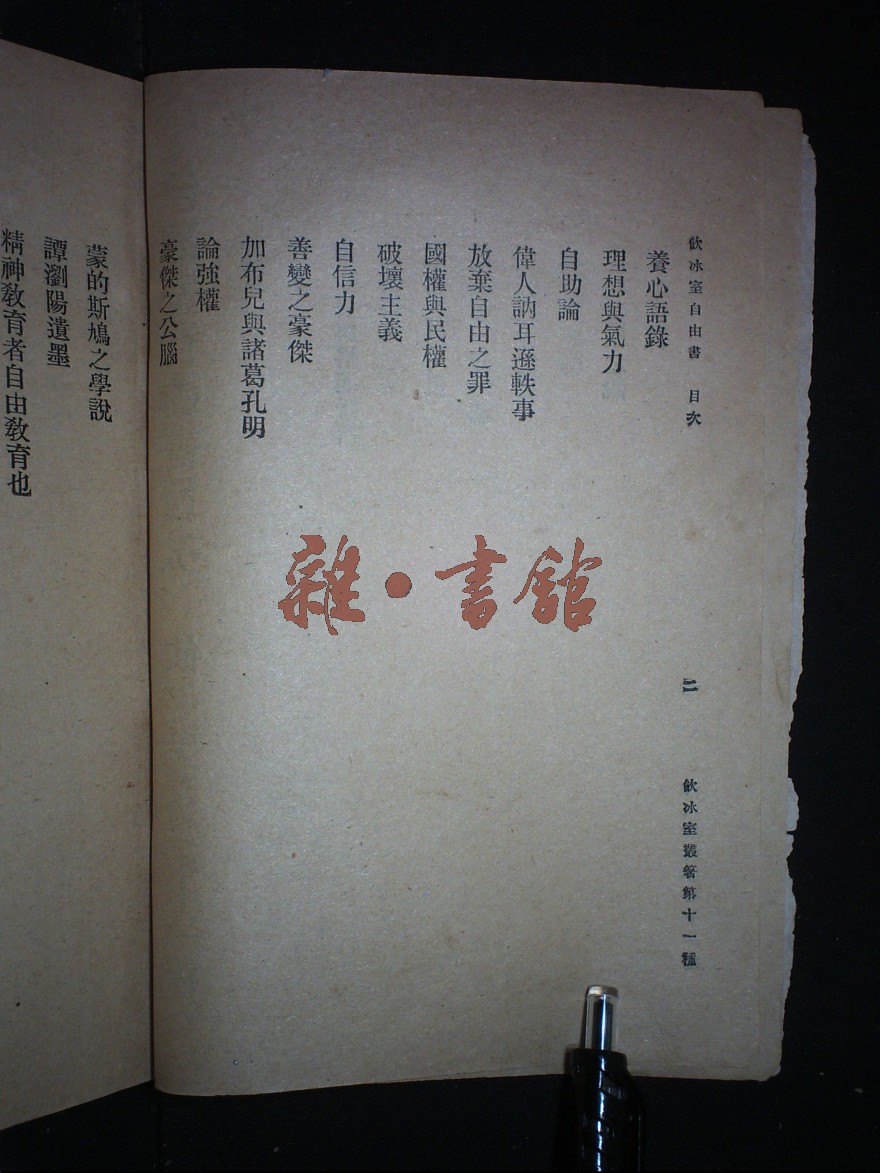 飲冰室自由書　目次
二
飲冰室叢著第十一種
養心語錄
理想與氣力
自助論
偉人訥耳遜軼事
放棄自由之罪
國權與民權
破壞主義
自信力
善變之豪傑
加布兒與諸葛孔明
論強權
豪傑之公腦
蒙的斯鳩之學說
譚瀏陽遺墨
精神教育者自由教育也
雜•書館